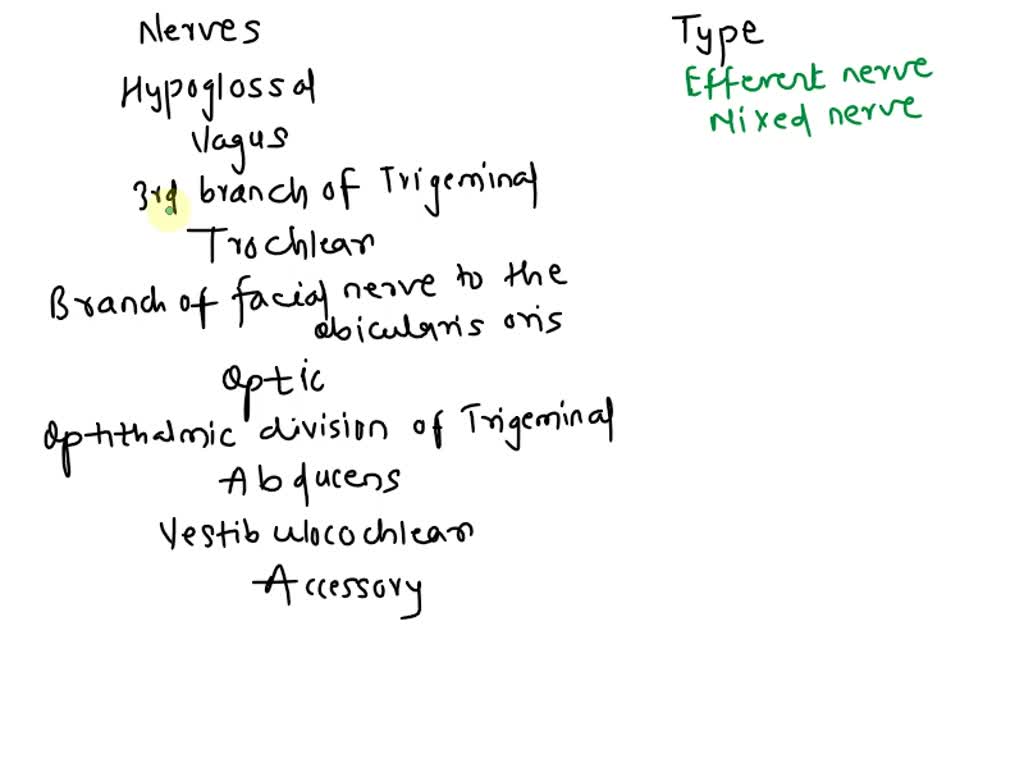 Nerves
Type
Hypoglossal
Efferent nerve
Vagus
Mixed nerve
3rd branch of Trigeminal
Trochlear
Branch of facial nerve to the
obicularis oris
Optic
Ophthalmic division of Trigeminal
Abducens
Vestibulocochlear
Accessory